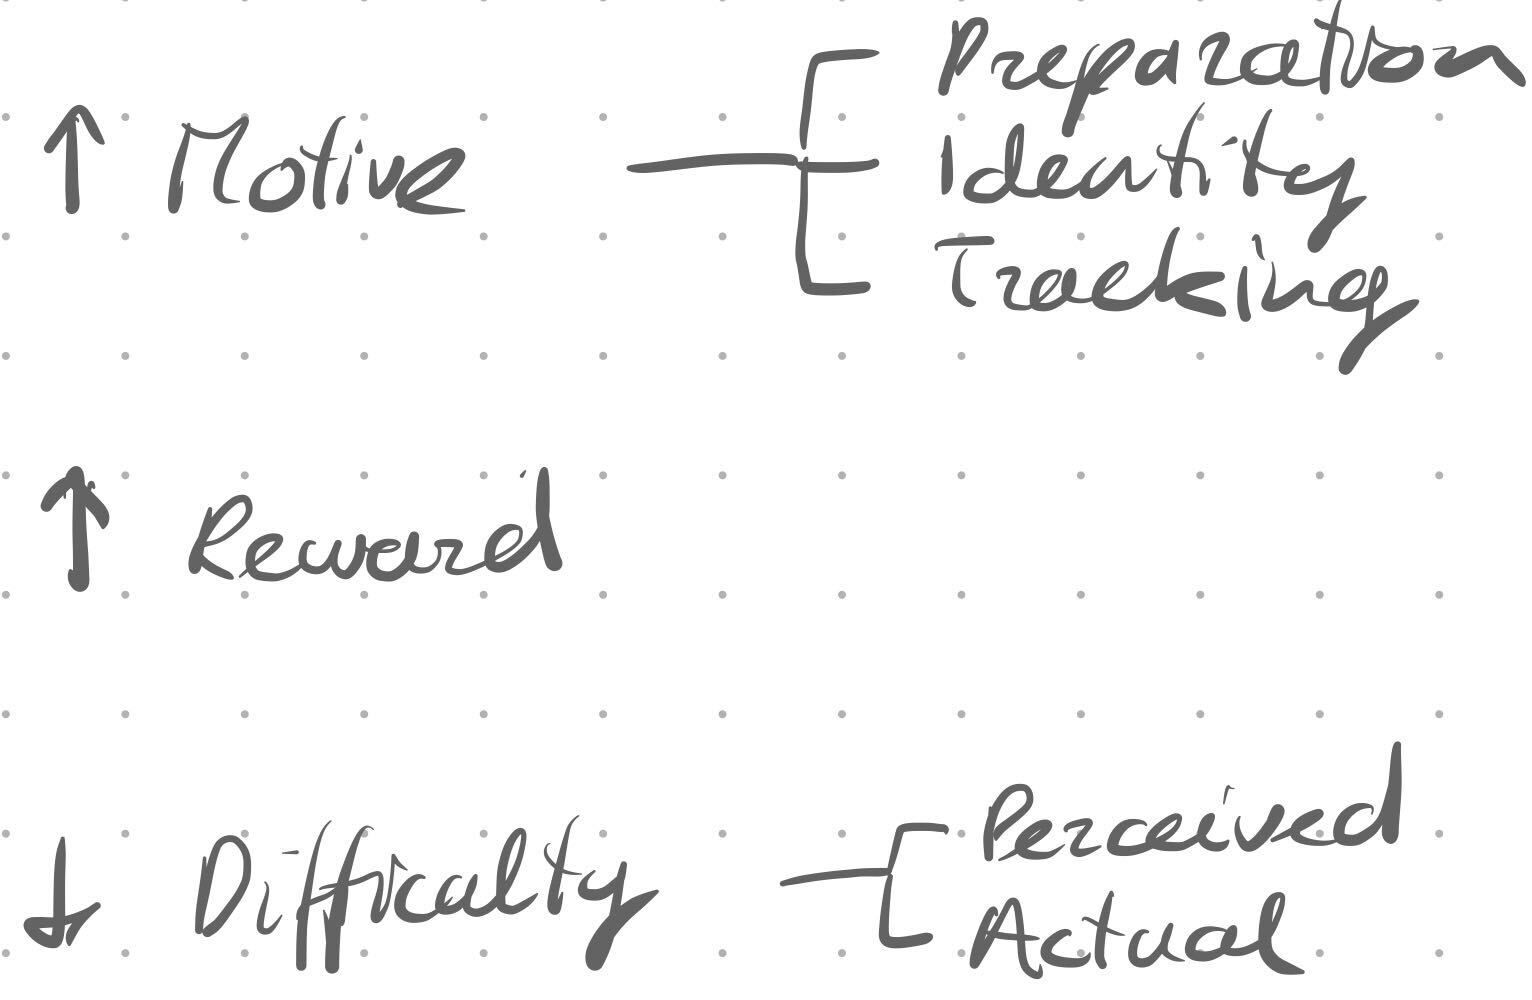 ↑ Motive
Preparation
Identity
Tracking
↑ Reward
↓ Difficulty
Perceived
Actual